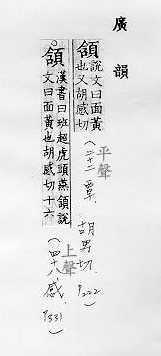 廣韻
頷說文曰面黃
也又胡感切
平聲
(二十二覃、胡男切、P222)
頷漢書曰班超虎頭燕頷說
文曰面黃也胡感切十六
上聲
(四十八感、P331)